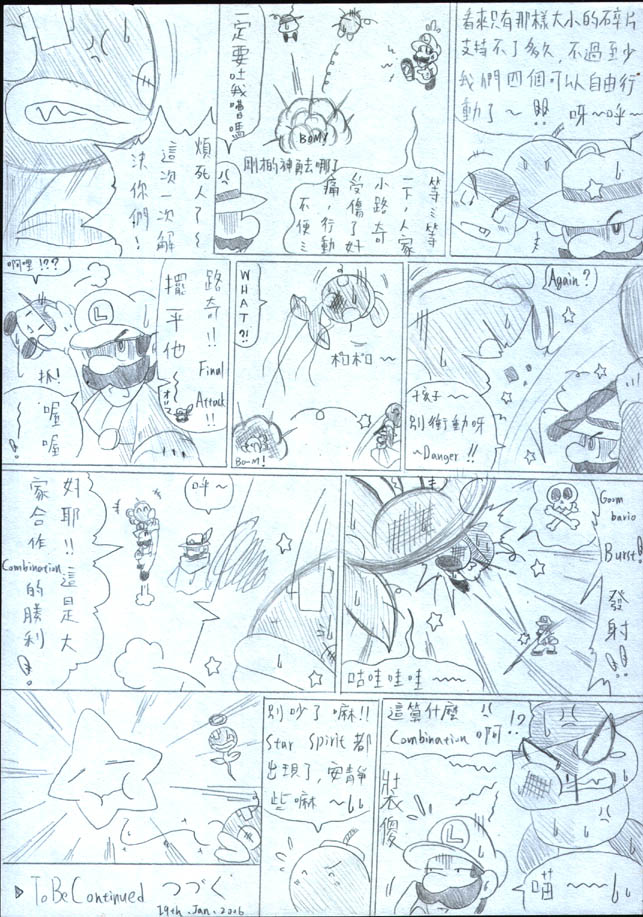 看來只有那樣大小的碎片
支持不了多久，不過至少
我們四個可以自由行
動了～!! 呀～呼～
一定要吐我嘈嗎
BOM!
等等等
一下，人家
小路奇
受傷了好
痛，行動
不便
煩死人了～
這次一次解
決你們！
Again?
孩子～
別衝動呀
~Danger!!
WHAT?!
和和～
BooM!
路奇!!
Final
Attack!!
擺平他
啊哩!??
抓!
喔喔
Goom
bario
Burst!
發射!!
咕哇哇哇~~~
呼～
好耶!!這是大
家合作
Combination
的勝利!
這算什麼
Combination啊!?
壯衣傻
喵~~~
別吵了嘛!!
Star Spirit都
出現了，安靜
些嘛～
▷ To Be Continued つづく
19th.Jan.2006